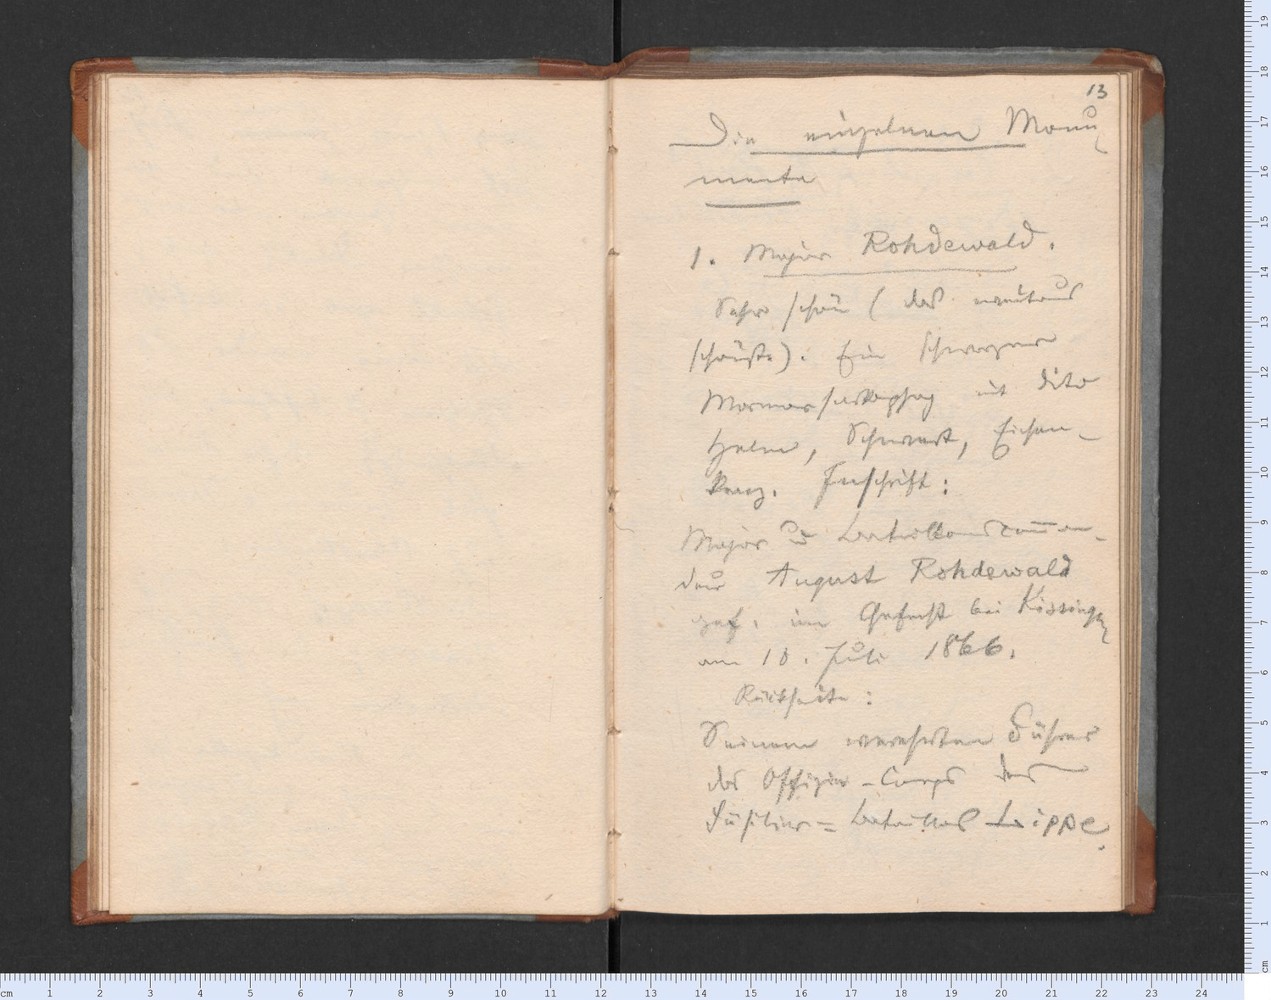 13
Die einzelnen Monu-
mente
1. Major Rohdewald.
Sehr schön (das weitaus
schönste). Ein schwarzer
Marmorsarkophag mit dito
Helm, Schwert, Eichen-
kranz. Inschrift:
Major u Bataillonscom̅an-
deur August Rohdewald
gef. im Gefecht bei Kissingen
am 10. Juli 1866.
Rückseite:
Seinem verehrten Führer
das Offizier-Corps des
Füsilier-Bataillons Lippe.